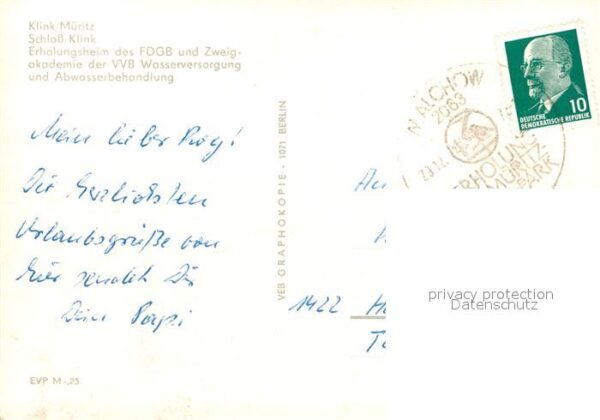 Klink/Müritz
Schloß Klink
Erholungsheim des FDGB und Zweig-
akademie der VVB Wasserversorgung
und Abwasserbehandlung
Mein lieber
Die herzlichsten
Urlaubsgrüße von
hier sendet Dir
Dein Papi
EVP M -,25
VEB GRAPHOKOPIE · 1071 BERLIN
MALCHOW
2063
23.12.
ERHOLUNG
MÜRITZ
PARK
10
DEUTSCHE
DEMOKRATISCHE REPUBLIK
1422
privacy protection
Datenschutz